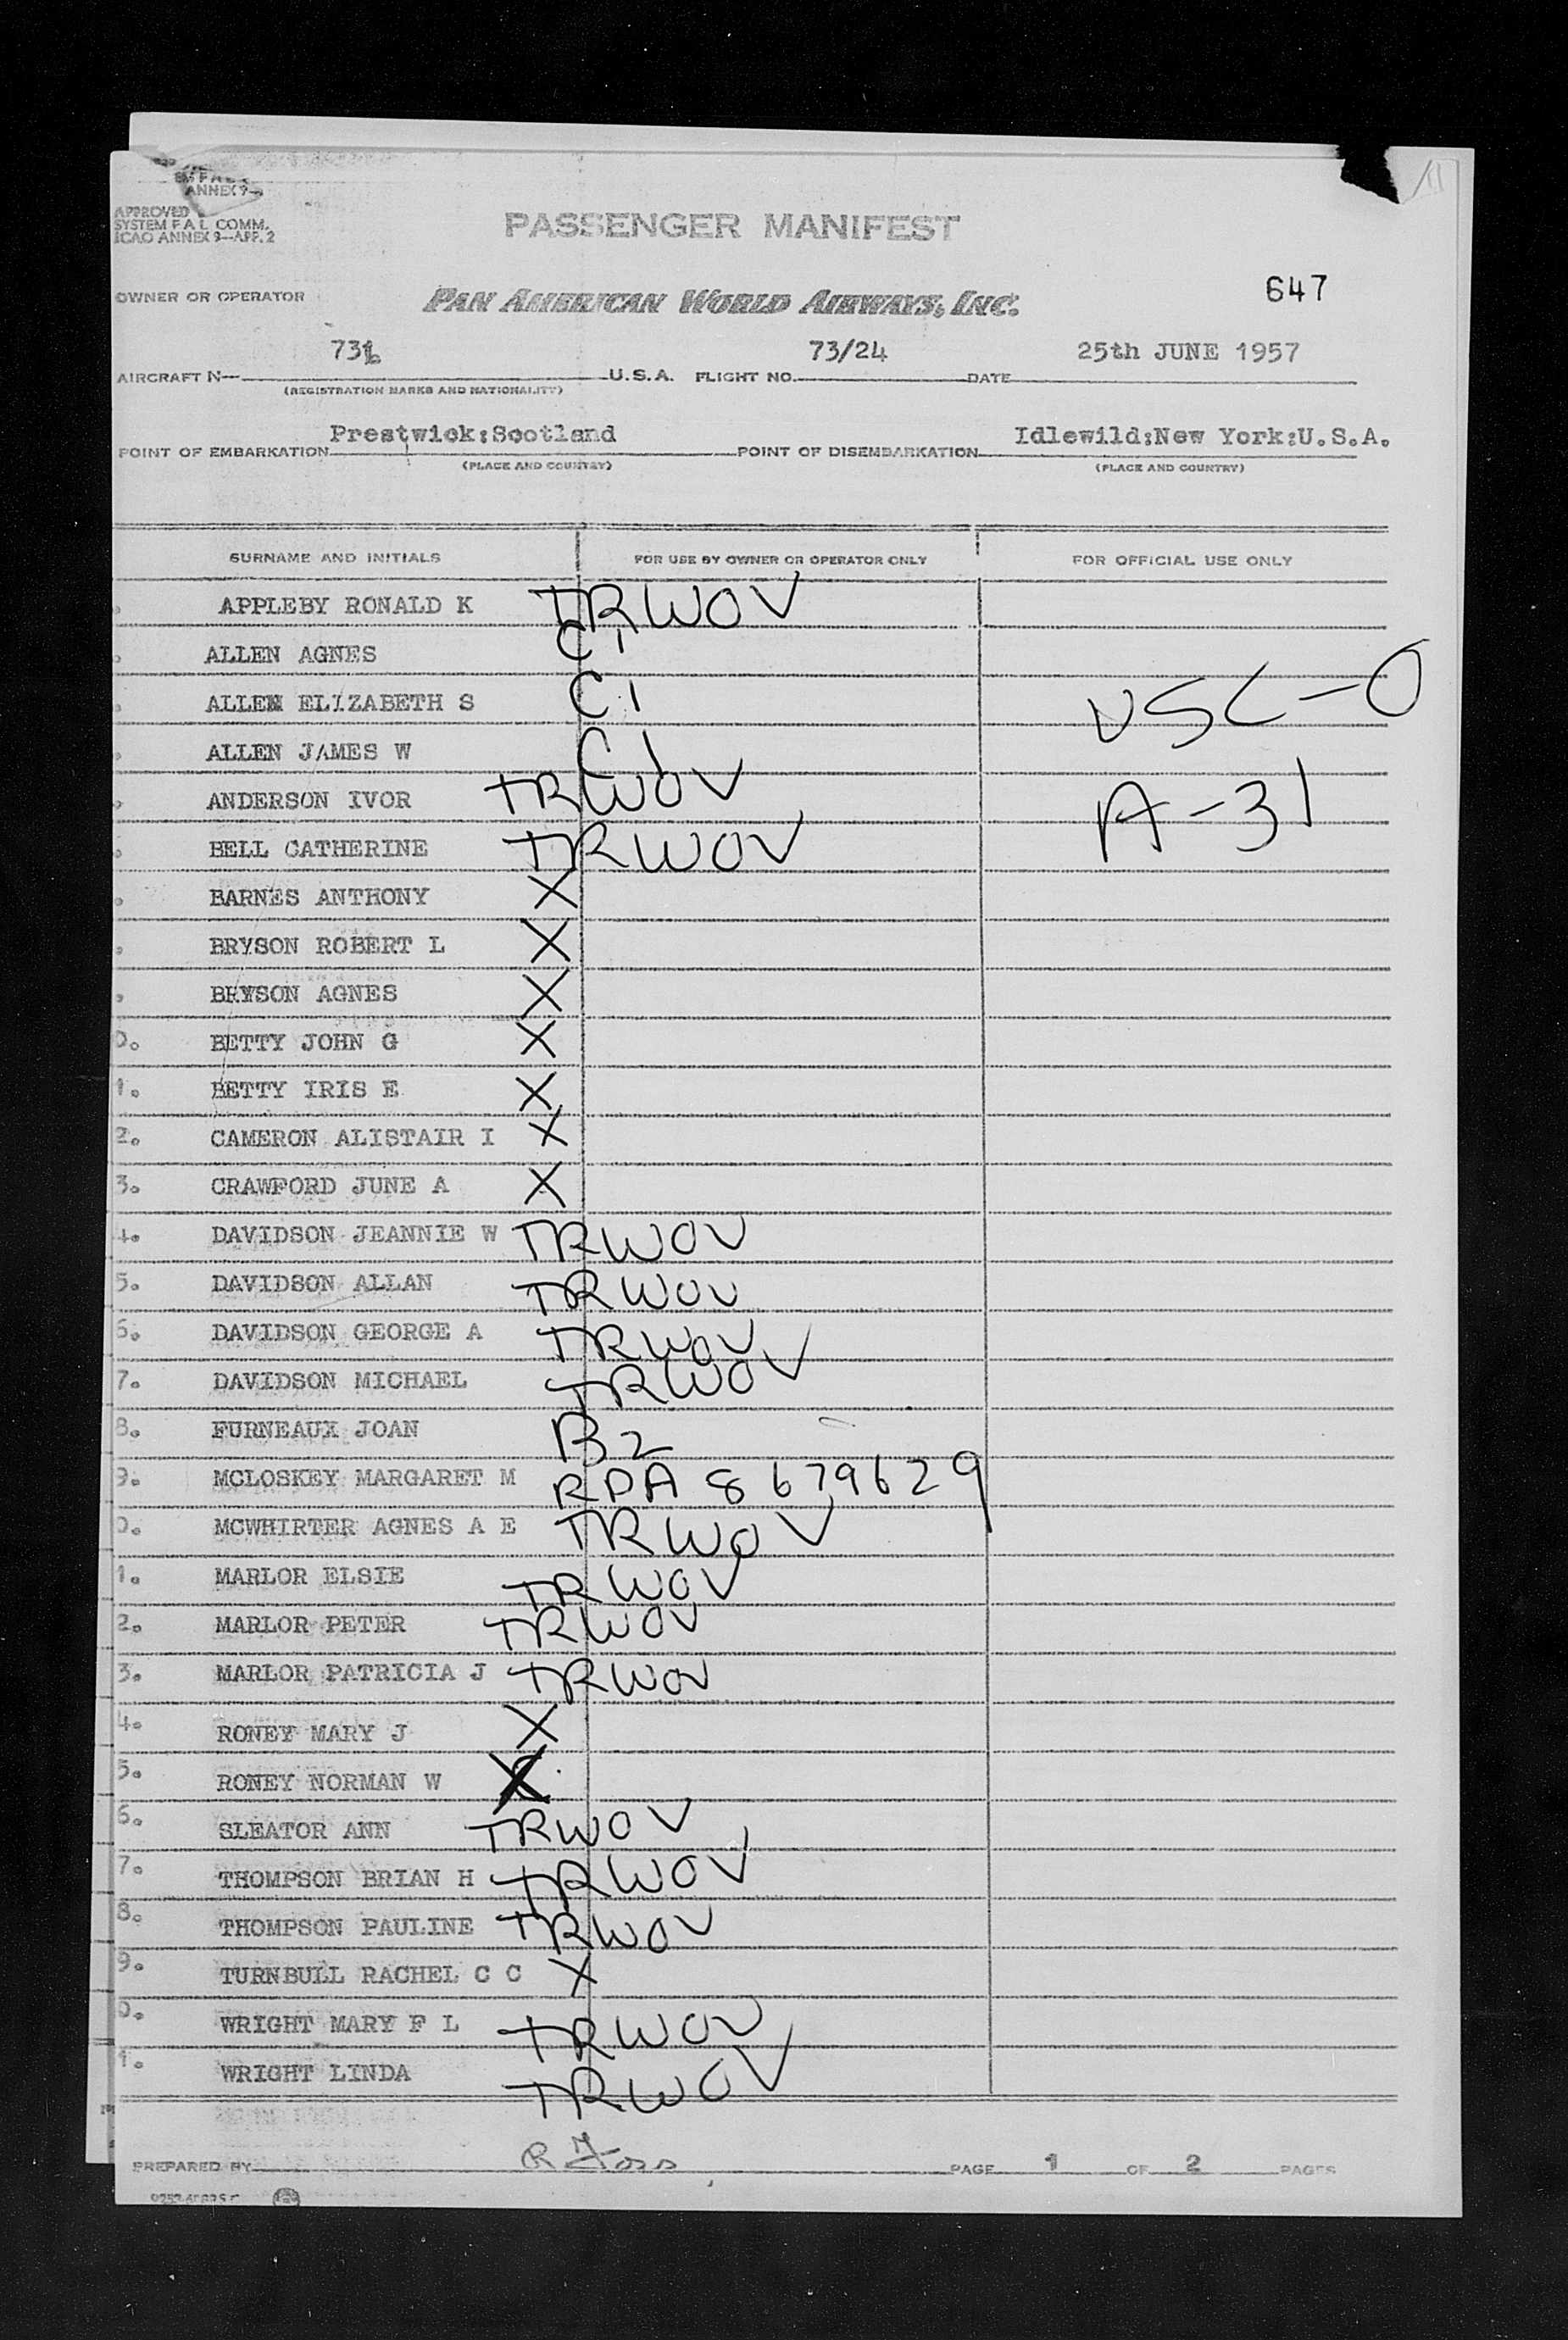 ANNEX 9—
APPROVED
SYSTEM F A L COMM.
ICAO ANNEX 9—APP. 2
PASSENGER MANIFEST
647
OWNER OR OPERATOR
PAN AMERICAN WORLD AIRWAYS, INC.
73/24
25th JUNE 1957
AIRCRAFT N— U.S.A. FLIGHT NO. DATE
(REGISTRATION MARKS AND NATIONALITY)
Prestwick:Scotland
Idlewild:New York:U.S.A.
POINT OF EMBARKATION POINT OF DISEMBARKATION
(PLACE AND COUNTRY) (PLACE AND COUNTRY)
SURNAME AND INITIALS FOR USE BY OWNER OR OPERATOR ONLY FOR OFFICIAL USE ONLY
APPLEBY RONALD K TRWOV
ALLEN AGNES C1
ALLEN ELIZABETH S C1
USC-0
ALLEN JAMES W C1
ANDERSON IVOR TRWOV
A-31
BELL CATHERINE TRWOV
BARNES ANTHONY X
BRYSON ROBERT L X
BRYSON AGNES X
0. BETTY JOHN G X
1. BETTY IRIS E X
2. CAMERON ALISTAIR I X
3. CRAWFORD JUNE A X
4. DAVIDSON JEANNIE W TRWOV
5. DAVIDSON ALLAN TRWOV
6. DAVIDSON GEORGE A TRWOV
7. DAVIDSON MICHAEL TRWOV
8. FURNEAUX JOAN B2
9. MCLOSKEY MARGARET M RPA 8679629
0. MCWHIRTER AGNES A E TRWOV
1. MARLOR ELSIE TRWOV
2. MARLOR PETER TRWOV
3. MARLOR PATRICIA J TRWOV
4. RONEY MARY J X
5. RONEY NORMAN W X
6. SLEATOR ANN TRWOV
7. THOMPSON BRIAN H TRWOV
8. THOMPSON PAULINE TRWOV
9. TURNBULL RACHEL C C X
0. WRIGHT MARY F L TRWOV
1. WRIGHT LINDA TRWOV
PREPARED BY PAGE 1 OF 2 PAGES